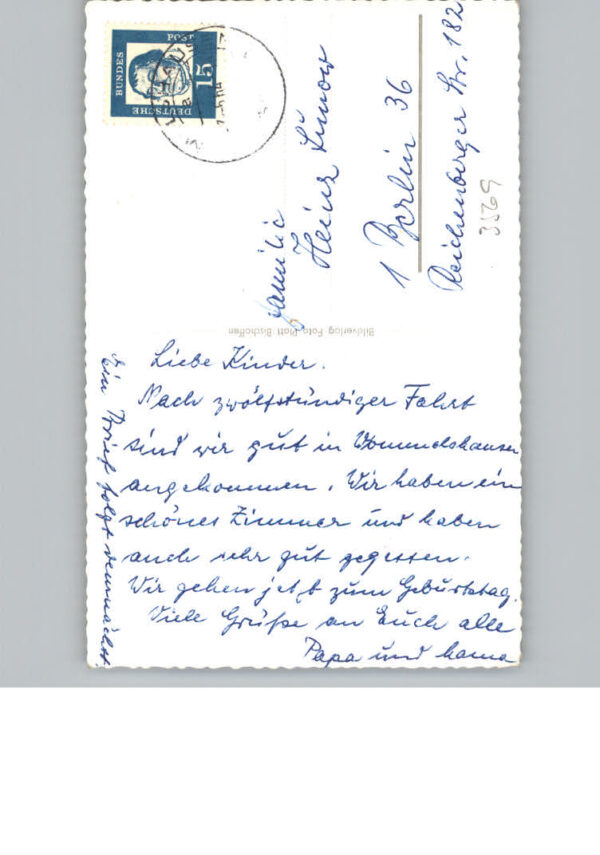 Liebe Kinder.
Nach zwölfstündiger Fahrt
sind wir gut in Wommelshausen
angekommen. Wir haben ein
schönes Zimmer und haben
auch sehr gut gegessen.
Wir gehen jetzt zum Geburtstag.
Viele Grüße an Euch alle
Papa und Mama
Ein Brief folgt demnächst
Familie
Heinz
1 Berlin 36
Reichenberger Str. 182
3569
Bildverlag Foto Bischoffen
DEUTSCHE
BUNDES
POST
15